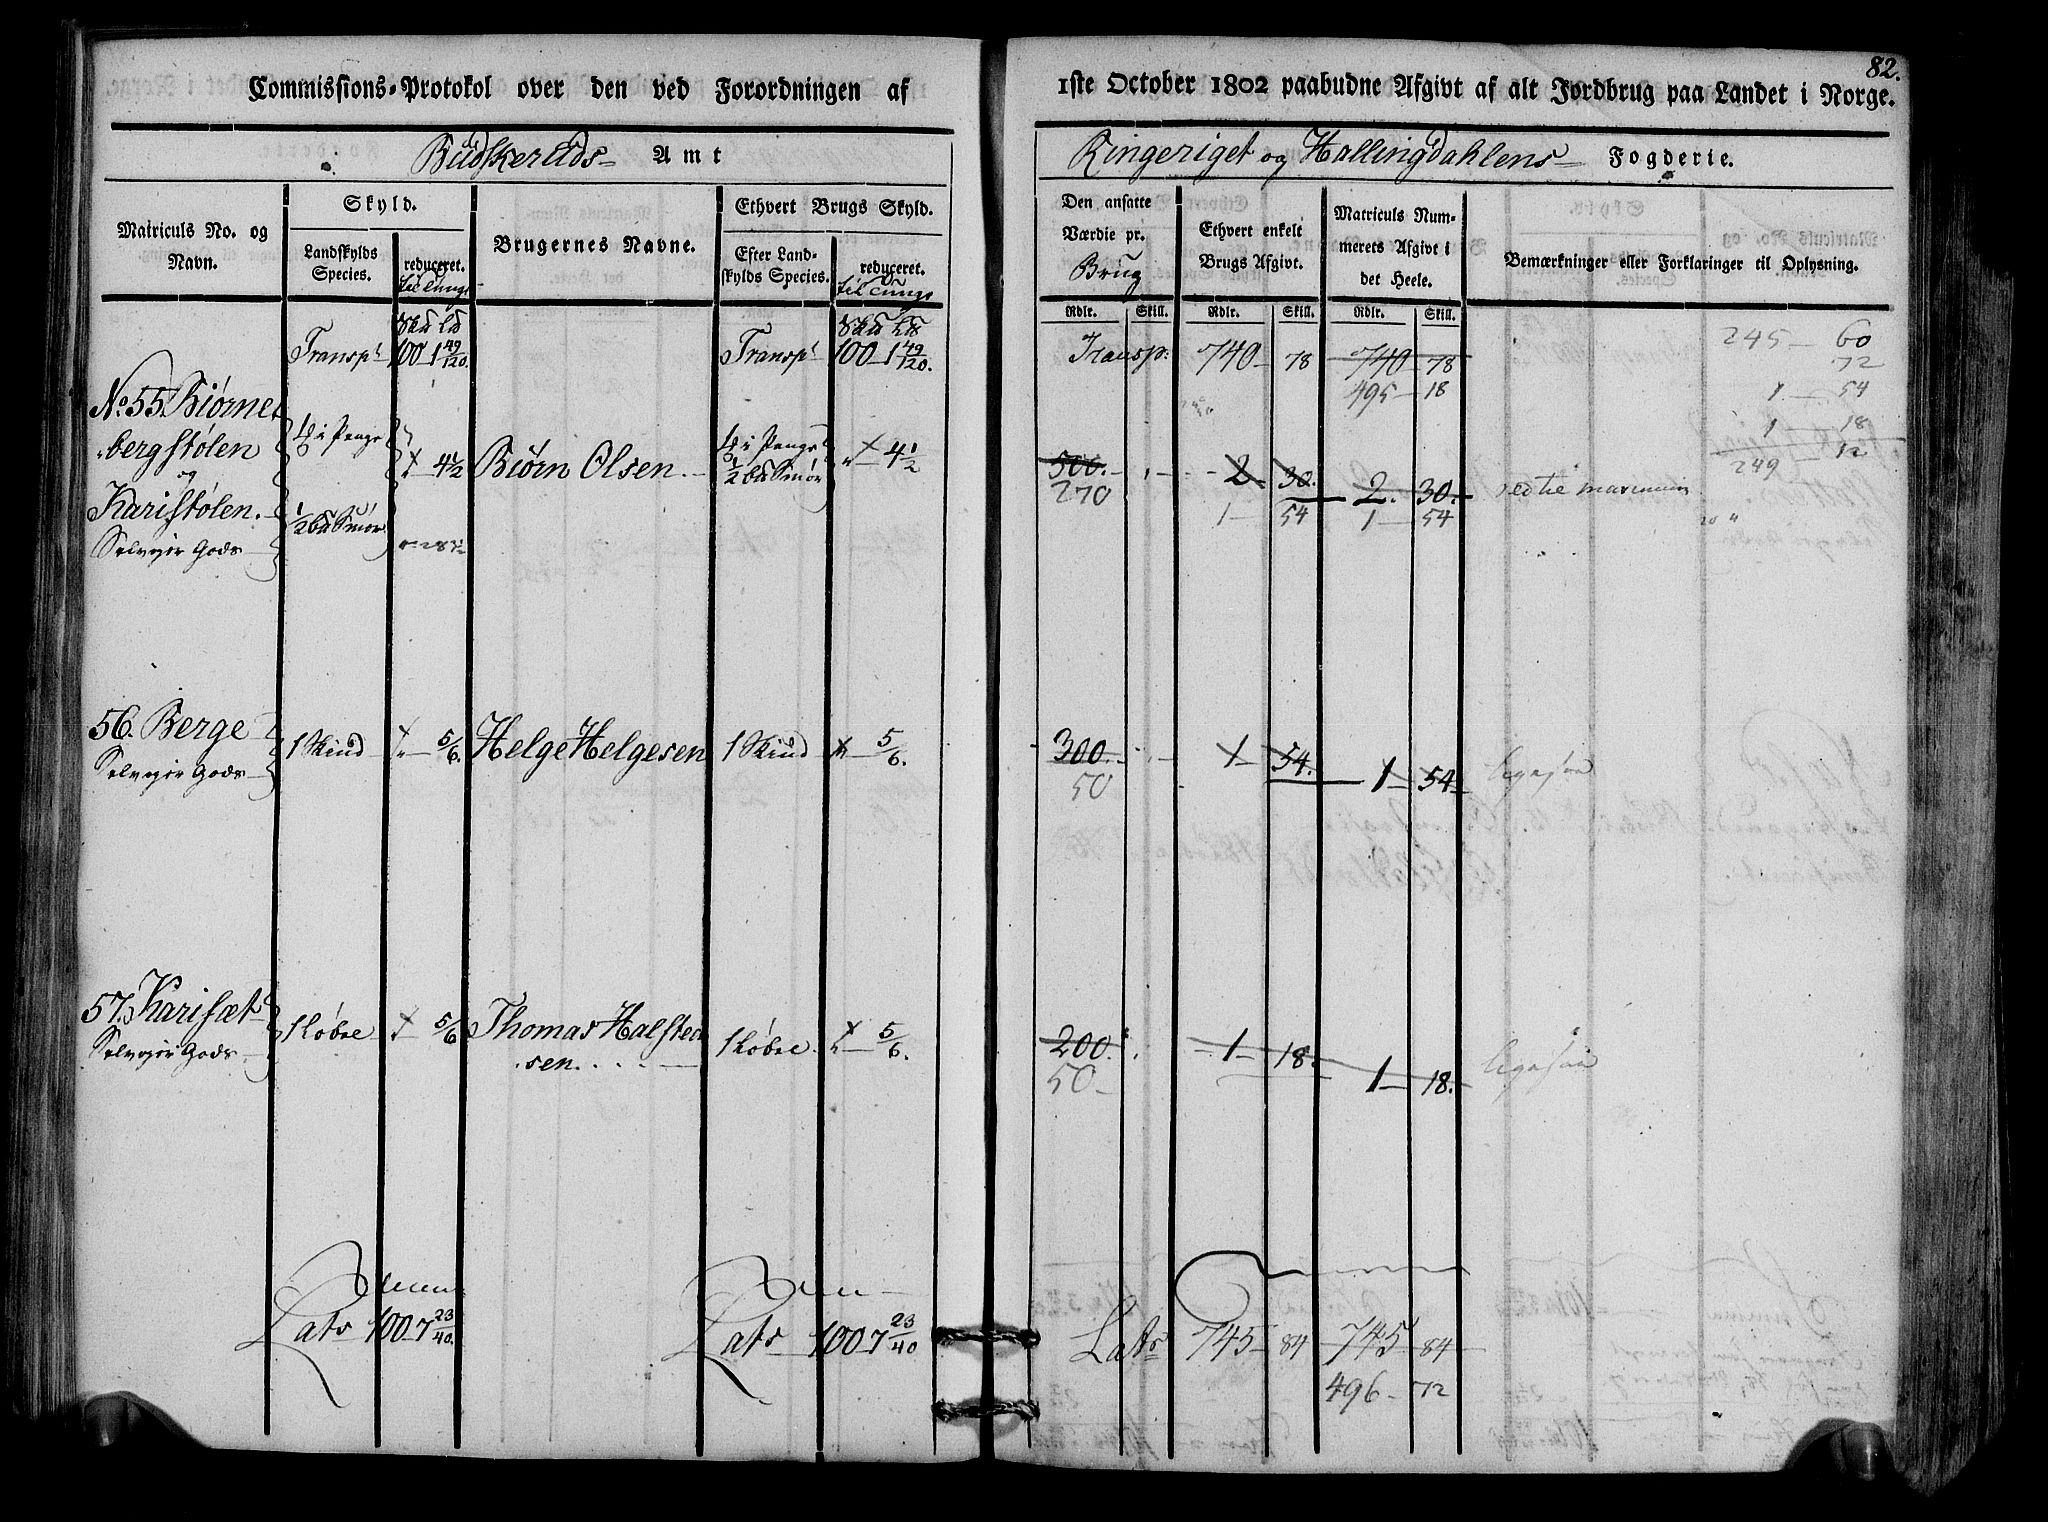 Commissions-Protokol over den ved Forordningen af
Budskeruds Amt
Matriculs No. og Navn.
Skyld.
Landskylds Species.
reduceret.
til Tunge
Brugernes Navne.
Ethvert Brugs Skyld.
Efter Landskylds Species.
reduceret.
til Tunge
Transpt 100 - 1 49/120. Transpt 100 - 1 49/120.
No. 55. Biørne-
bergstølen
og
Karistølen.
Selveier Gods
i Penge
1/2 Smør
4 1/2
Biørn Olsen
i Penge
1/2 Smør
4 1/2
56. Berge
Selveier Gods
1 Skind
5/6.
Helge Helgesen
1 Skind
5/6.
57. Karisæt
Selveier Gods
1 Løbse
5/6
Thomas Halsted
sen.
1 Løbse
5/6.
Lats 100 - 7 23/40. Lats 100 - 7 23/40
82.
1ste October 1802 paabudne Afgivt af alt Jordbrug paa Landet i Norge.
Ringeriget og Hallingdahlens Fogderie.
Den ansatte Værdie pr.
Brug
Ethvert enkelt Brugs Afgivt.
Matriculs Nummerets Afgivt i det Heele.
Bemærkninger eller Forklaringer til Oplysning.
Rdlr. Skill. Rdlr. Skill. Rdlr. Skill.
Transp: 740 - 78 740 - 78
495 - 18
245 - 60
72
1 - 54
1 - 18
249 - 12
500. 2 30. 2. 30.
270 1 - 54 1 - 54
300. 1 54. 1 - 54
50
200. 1 - 18. 1 - 18.
50
Lats 745 - 84 745 - 84
496 - 72